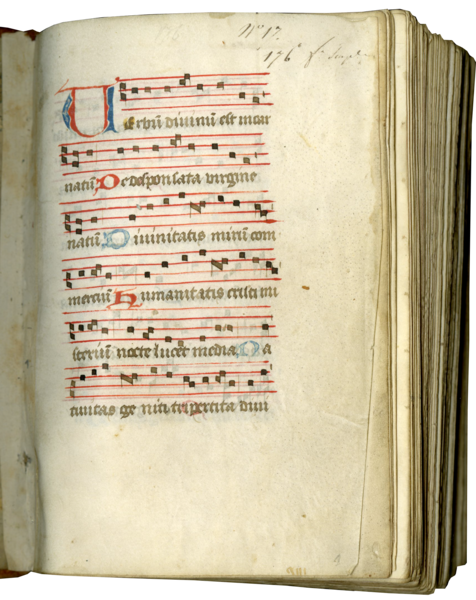 Nº 17.
176
Uerbū divinū est incar
natū De desponsata virgine
natū Divinitatis mirū com
mercīū Humanitatis cristi mi
steriū nocte lucet media Na
tivitas geniti tripertita divi